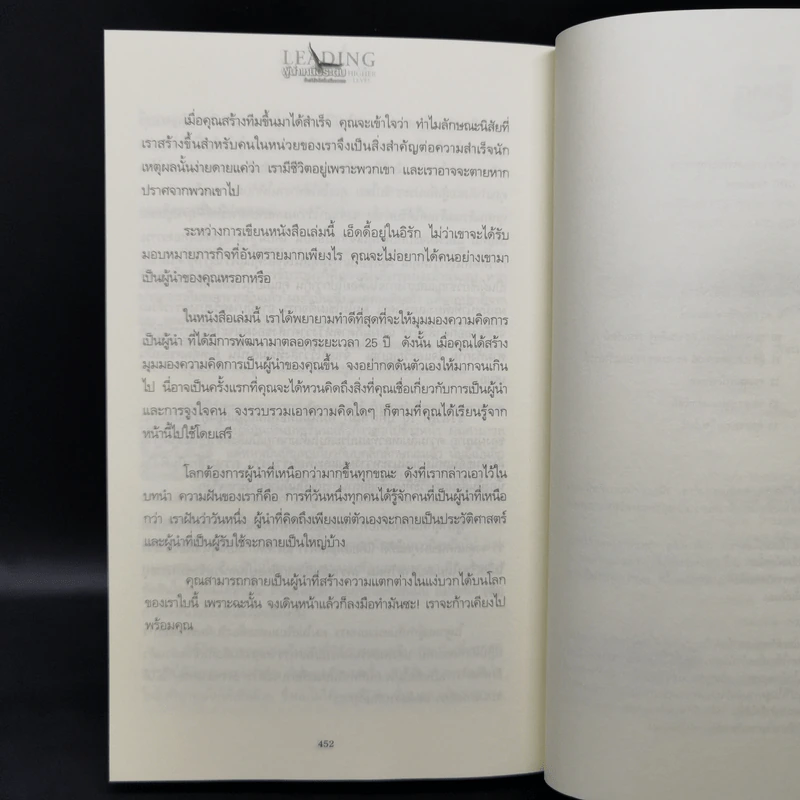 LEADING
ผู้นำเหนือระดับ
เมื่อคุณสร้างทีมขึ้นมาได้สำเร็จ คุณจะเข้าใจว่า ทำไมลักษณะนิสัยที่
เราสร้างขึ้นสำหรับคนในหน่วยของเราจึงเป็นสิ่งสำคัญต่อความสำเร็จนัก
เหตุผลนั้นง่ายดายแค่ว่า เรามีชีวิตอยู่เพราะพวกเขา และเราอาจจะตายหาก
ปราศจากพวกเขาไป
ระหว่างการเขียนหนังสือเล่มนี้ เอ็ดดี้อยู่ในอิรัก ไม่ว่าเขาจะได้รับ
มอบหมายภารกิจที่อันตรายมากเพียงไร คุณจะไม่อยากได้คนอย่างเขามา
เป็นผู้นำของคุณหรอกหรือ
ในหนังสือเล่มนี้ เราได้พยายามทำดีที่สุดที่จะให้มุมมองความคิดการ
เป็นผู้นำ ที่ได้มีการพัฒนามาตลอดระยะเวลา 25 ปี ดังนั้น เมื่อคุณได้สร้าง
มุมมองความคิดการเป็นผู้นำของคุณขึ้น จงอย่ากดดันตัวเองให้มากจนเกิน
ไป นี่อาจเป็นครั้งแรกที่คุณจะได้หวนคิดถึงสิ่งที่คุณเชื่อเกี่ยวกับการเป็นผู้นำ
และการจูงใจคน จงรวบรวมเอาความคิดใดๆ ก็ตามที่คุณได้เรียนรู้จาก
หน้านี้ไปใช้โดยเสรี
โลกต้องการผู้นำที่เหนือกว่ามากขึ้นทุกขณะ ดังที่เรากล่าวเอาไว้ใน
บทนำ ความฝันของเราก็คือ การที่วันหนึ่งทุกคนได้รู้จักคนที่เป็นผู้นำที่เหนือ
กว่า เราฝันว่าวันหนึ่ง ผู้นำที่คิดถึงเพียงแต่ตัวเองจะกลายเป็นประวัติศาสตร์
และผู้นำที่เป็นผู้รับใช้จะกลายเป็นใหญ่บ้าง
คุณสามารถกลายเป็นผู้นำที่สร้างความแตกต่างในแง่บวกได้บนโลก
ของเราใบนี้ เพราะฉะนั้น จงเดินหน้าแล้วก็ลงมือทำมันซะ! เราจะก้าวเคียงไป
พร้อมคุณ
452